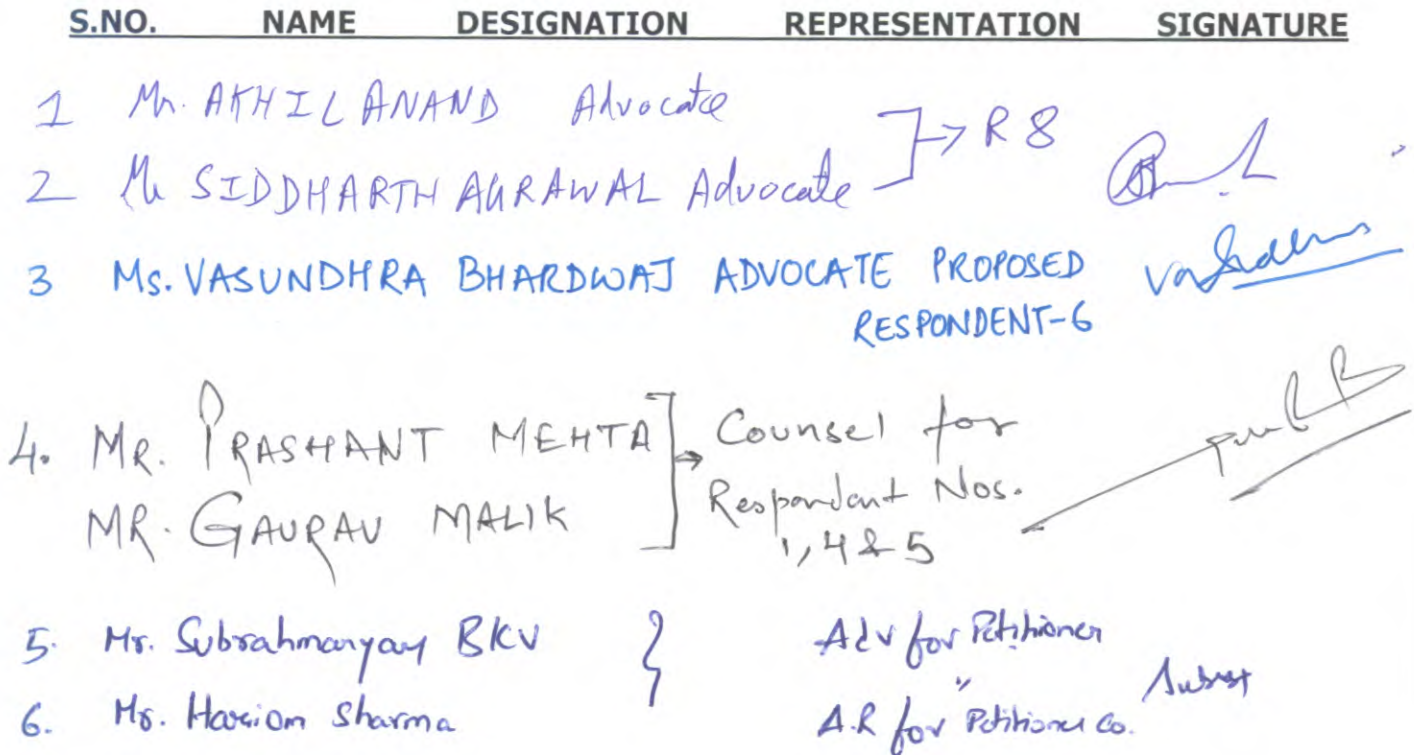 S.NO. NAME DESIGNATION REPRESENTATION SIGNATURE
1 Mr. AKHIL ANAND Advocate
2 Mr SIDDHARTH AGRAWAL Advocate → R 8
3 Ms. VASUNDHRA BHARDWAJ ADVOCATE PROPOSED
RESPONDENT-6
4. MR. PRASHANT MEHTA → Counsel for
MR. GAURAV MALIK Respondant Nos.
1, 4 & 5
5. Mr. Subrahmanyam BKV Adv for Petitioner
6. Mr. Hariom Sharma A.R for Petitioner Co.